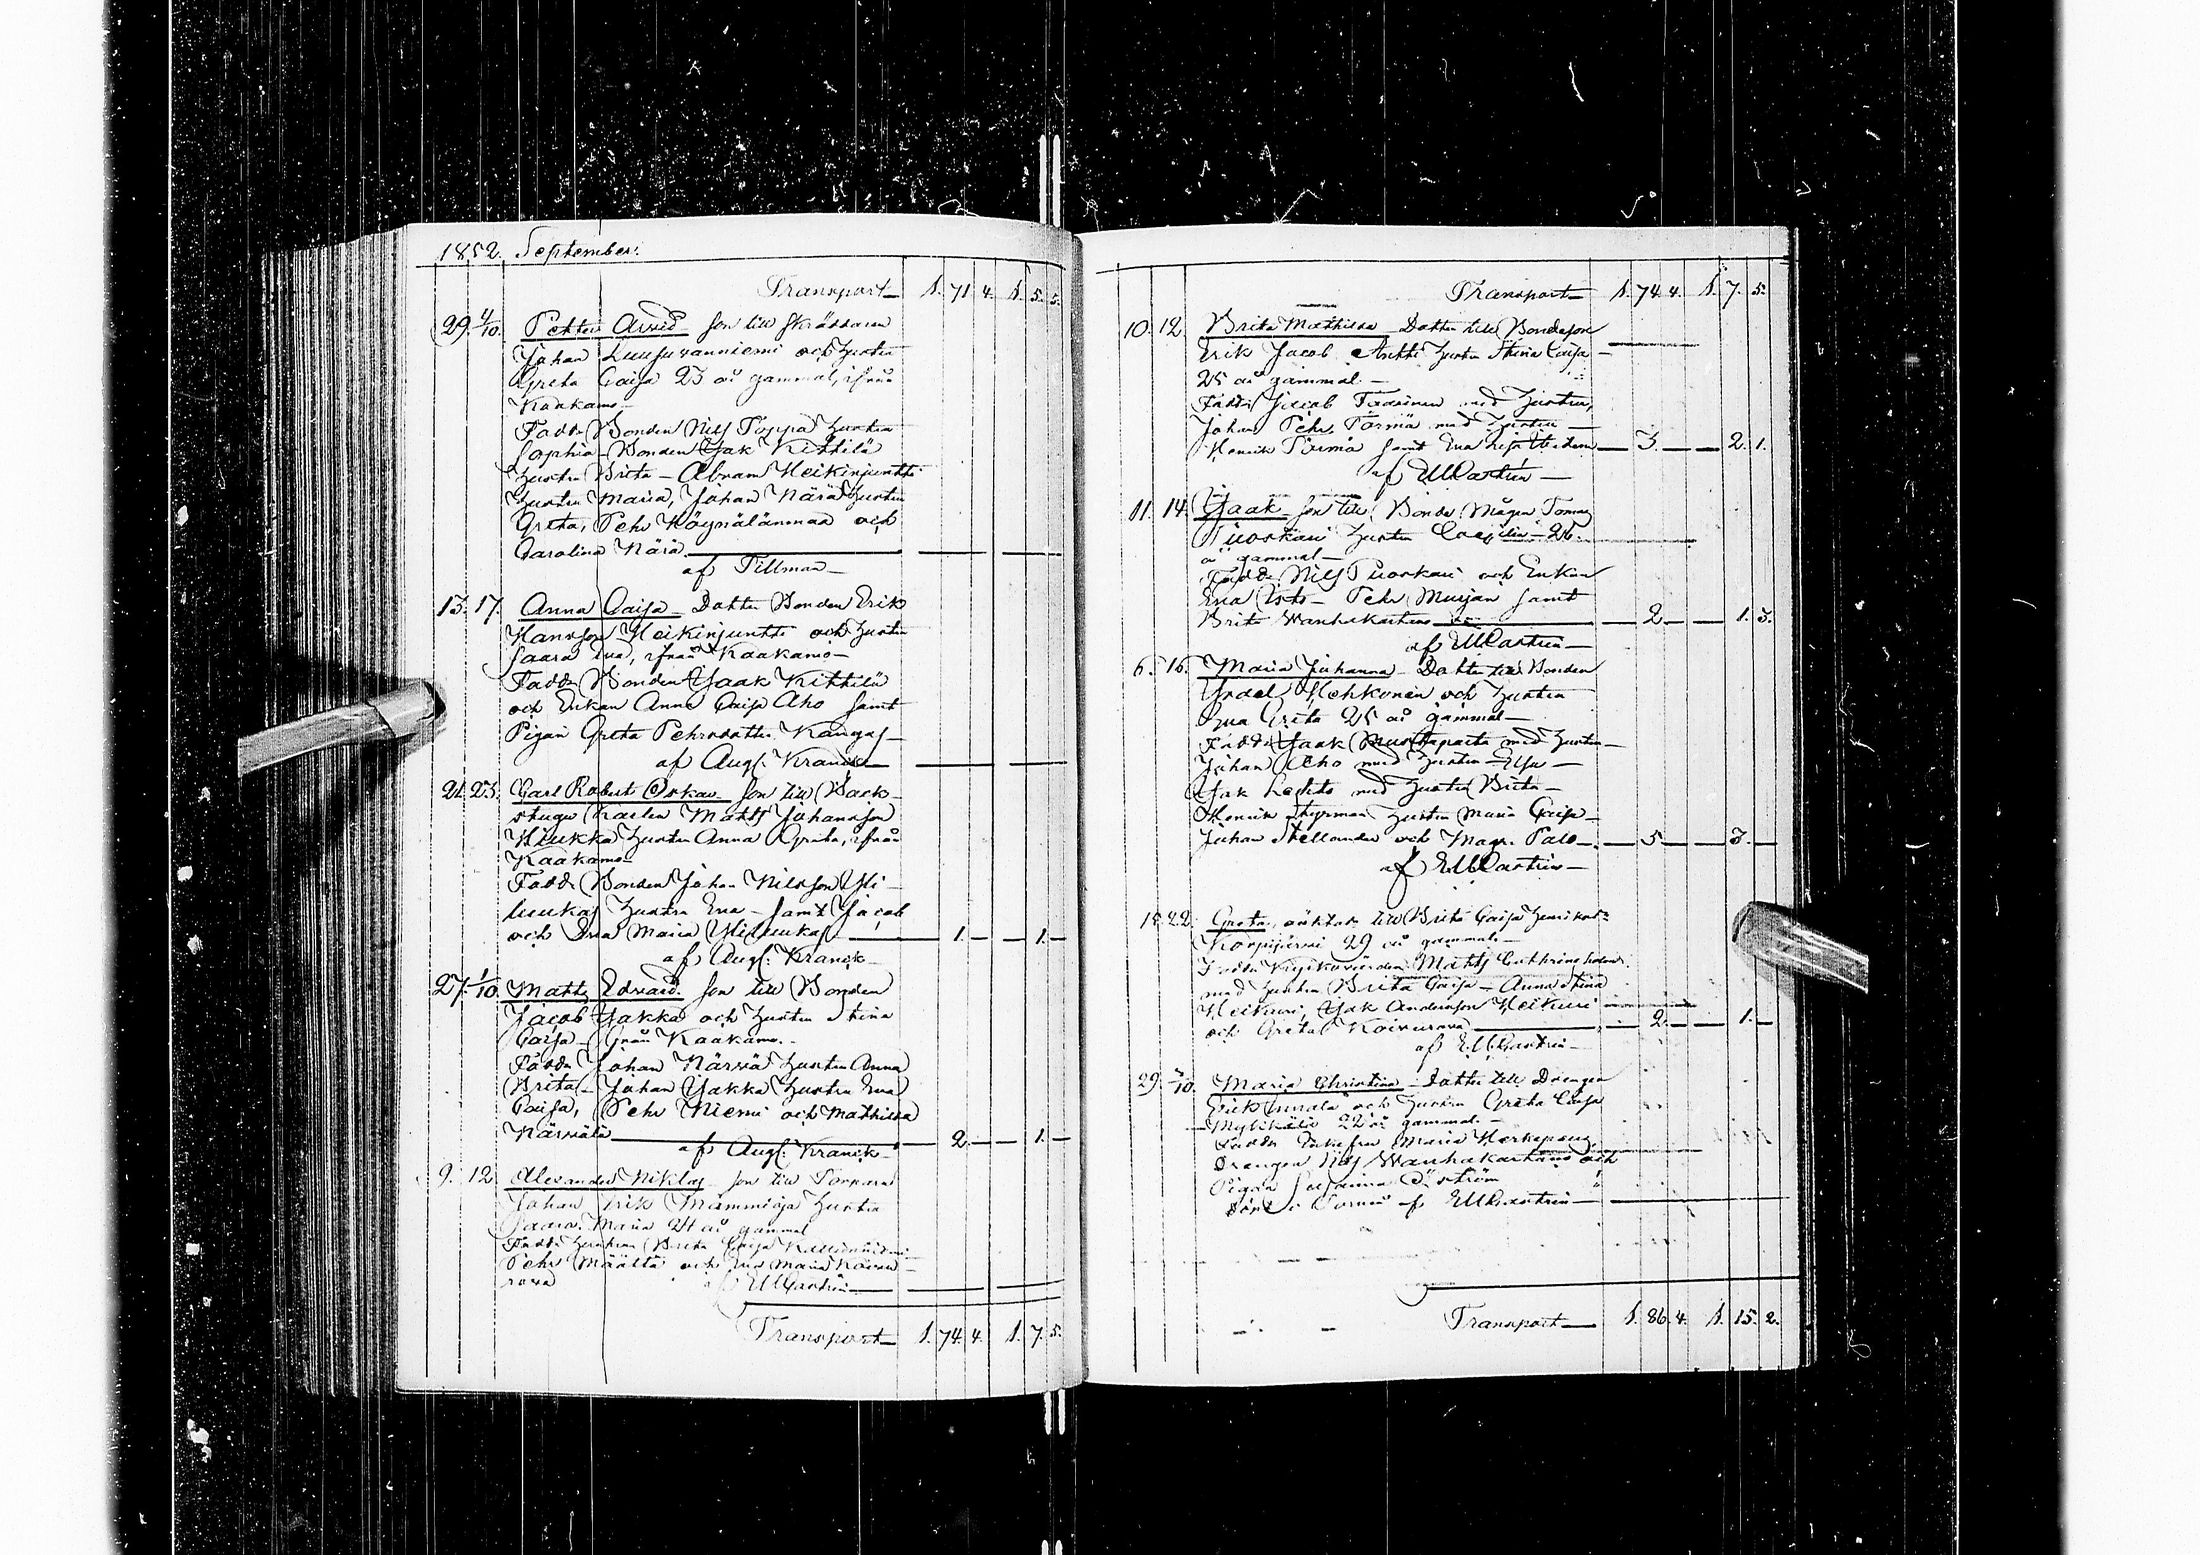 1852. September.
Transport 1. 71 4. 1. 5. 5.
29. 4/10. Petter Arvid Son till Skräddaren
Johan Luusuanniemi och Hustru
Greta Caisa 23 år gammal, ifrån
Kaakamo
Fadd. Bonden Nils Poppa Hustru
Sophia - Bonden Isak Kittilä
Hustru Brita - Abram Heikinjuntti
Hustru Maria, Johan Närä Hustru
Greta, Pehr Köynälänmaa och
Carolina Närä
af Tillman
13. 17. Anna Caisa - Dotter Bonden Erik
Hansson Heikinjuntti och Hustru
Saara Eva, ifrån Kaakamo -
Fadd. Bonden Isaak Kittilä
och Enkan Anna Caisa Aho samt
Pigan Greta Pehrsdotter Kangas -
af Augs. Kranck
21. 23. Carl Robert Oskar - Son till Back-
stugu Karlen Matts Johansson
Hiukka Hustru Anna Greta, ifrån
Kaakamo
Fadd. Bonden Johan Nilsson Yli-
liukas Hustru Eva - samt Jacob
och Eva Maria Yliliukas 1. 1.
af Augs. Kranck
27. 1/10. Matts Edvard. Son till Bonden
Jacob Jakka och Hustru Stina
Caisa - från Kaakamo.
Fadd. Johan Närvä Hustru Anna
Brita - Johan Jakka Hustru Eva
Caisa, Pehr Niemi och Mathilda
Närvälä 2. 1.
af Augs. Kranck
9. 12 Alexander Niklas Son till Torparn
Johan Erik Mämmioja Hustru
Saara Maria 24 år gammal
Fadd. Brita Caisa
Pehr Määttä och Eva Maria Koivu-
rova af EMCastrén
Transport 1. 74. 4. 1. 7. 5.
Transport 1. 74. 4. 1. 7. 5.
10. 12. Brita Mathilda - Dotter till Bondeson
Erik Jacob Antti Hustru Stina Caisa -
25 år gammal. -
Fadd. Jacob med Hustru,
Johan Pehr Törmä med Hustru -
Henrik Törmä samt Eva Lisa 3. 2. 1.
af EMCastrén
11. 14. Isaak - Son till Bonde Mågen Tomas
Puoskari Hustru Caecilia - 26.
år gammal -
Fadd. Nils Puoskari och Enkan
Eva - Pehr Murjan samt
Brita Wanhakartano 2. 1. 3.
af EMCastrén
6. 16. Maria Johanna - Dotter till Bonden
Israel Mehkonen och Hustru
Eva Greta 25 år gammal -
Fadd. Isaak med Hustru -
Johan Aho med Hustru - Elsa -
Isak Lechto med Hustru Brita -
Henrik Styrman Hustru Maria Caisa -
Johan Stellander och Magr. Palo 5. 3.
af EMCastrén
18. 22. Greta, oäkta till Brita Caisa Henriksdr
Korpijärvi 29 år gammal -
Fadd. Kyrkovärden Matts
med Hustru Brita Caisa - Anna Stina
Heikuri, Isak Andersson Heikuri
och Greta Koivurova 2. 1.
af EMCastrén
29. /10. Maria Christina - Dotter till Drengen
Erik Unnala och Hustru Greta Caisa
22 år gammal. -
Fadd. Enkefru Maria Herkepæus,
Drengen Nils Wanhakartano och
Pigan Susanna
Döpt i Torneå af EMCastrén
Transport 1. 86. 4. 1. 15. 2.